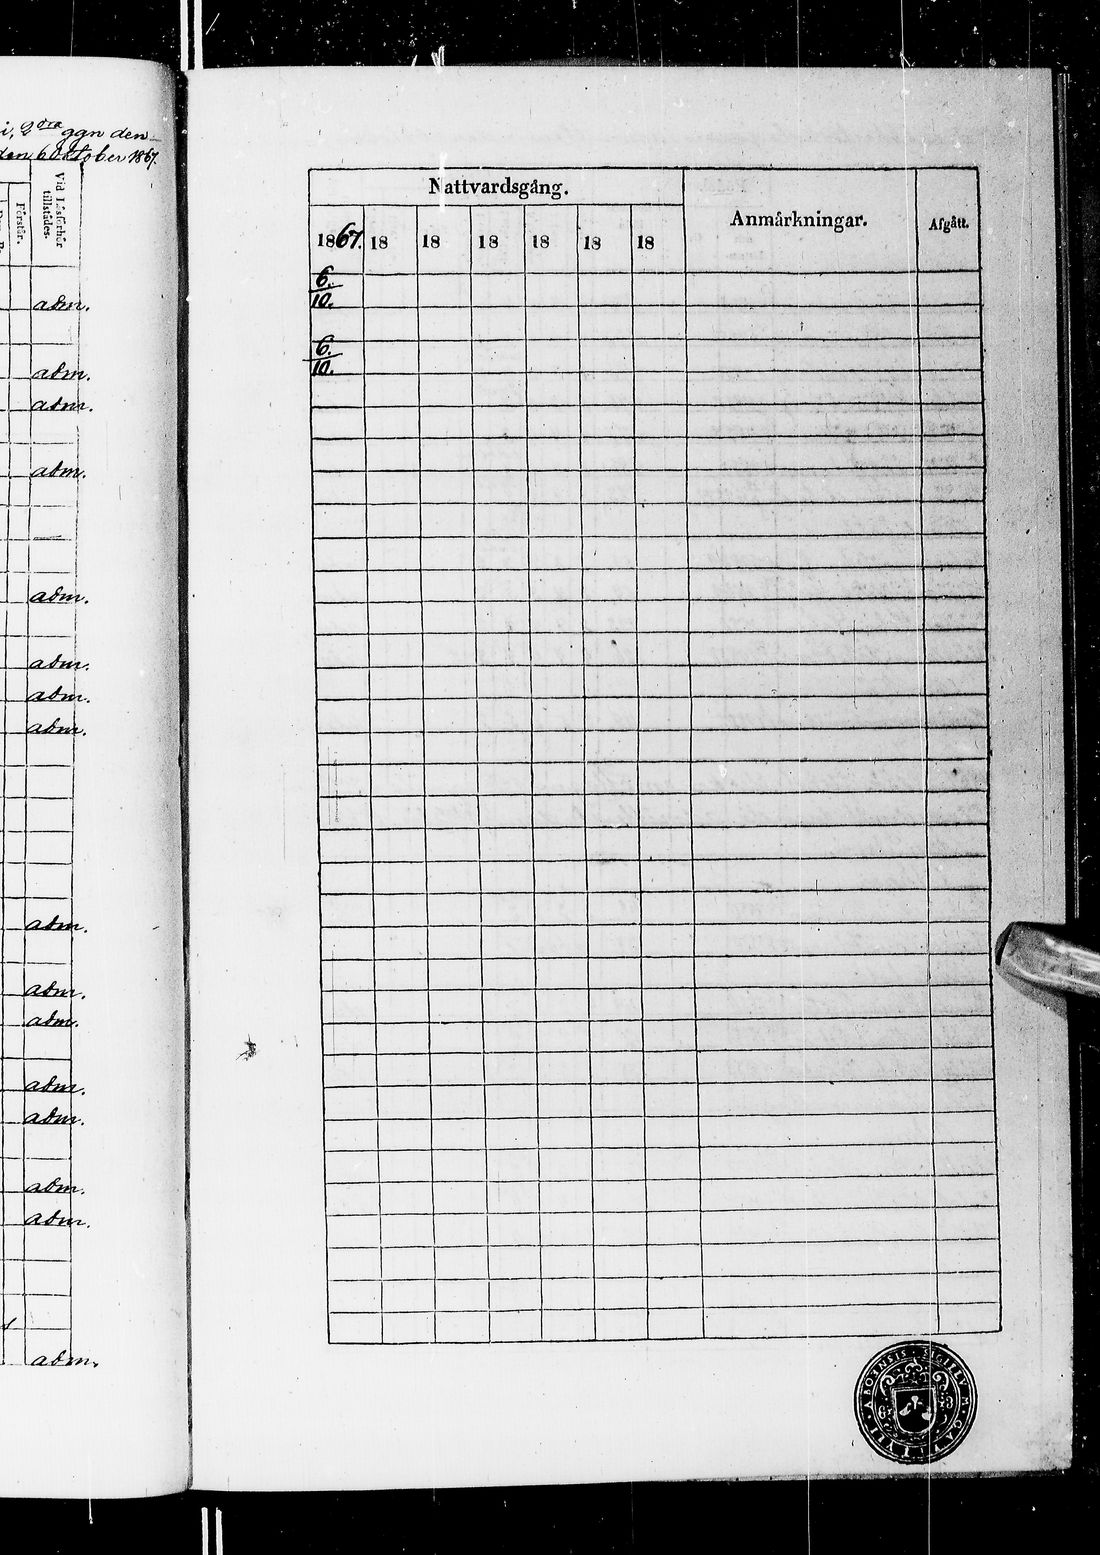 i, 2dra ggn den
den 6 October 1867.
Förstår.
Vid Läsförhör
tillstädes.
adm.
adm.
adm.
adm.
adm.
adm.
adm.
adm.
adm.
adm.
adm.
adm.
adm.
adm.
adm.
adm.
Nattvardsgång.
Anmärkningar.
Afgått.
1867. 18 18 18 18 18 18
6.
10.
6.
10.